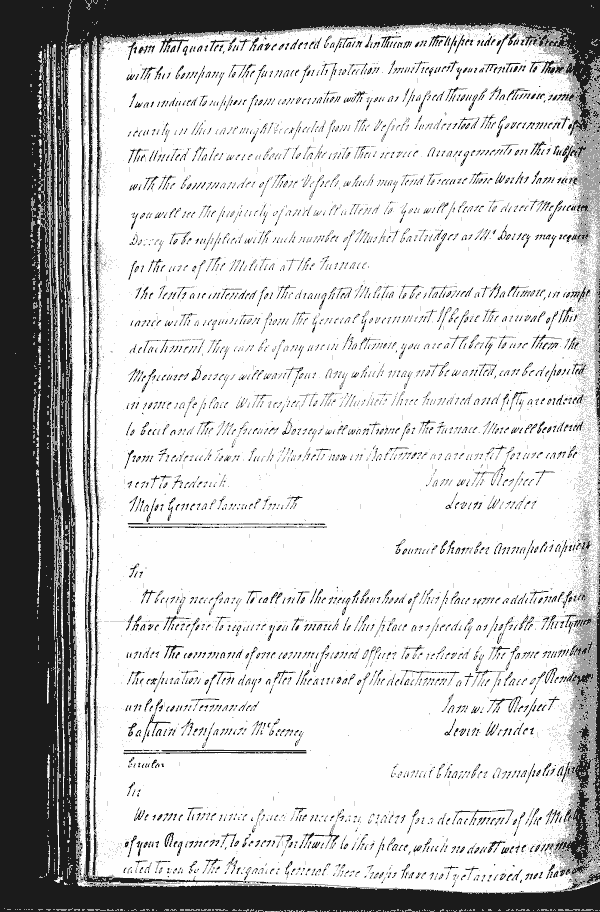 from that quarter, but have ordered Captain Linthicum on the upper side of Curtis Creek
with his Company to the furnace for its protection. I must request your attention to those
I was induced to suppose from conversation with you as I passed through Baltimore, some
security in this case might be expected from the Vessels I understood the Government of
the United States were about to take into their service. Arrangements on this subject
with the Commander of those Vessels, which may tend to secure those Works I am sure
you will see the propriety of and will attend to. You will please to direct Messieurs
Dorsey to be supplied with such number of Musket Cartridges as Mr Dorsey may require
for the use of the Militia at the Furnace.
The Tents are intended for the draughted Militia to be stationed at Baltimore, in compl
iance with a requisition from the General Government. If before the arrival of this
detachment, they can be of any use in Baltimore, you are at liberty to use them. The
Messieures Dorseys will want four. Any which may not be wanted, can be deposited
in some safe place. With respect to the Muskets three hundred and fifty are ordered
to Cecil and the Messieurs Dorseys will want some for the Furnace. More will be ordered
from Frederick Town. Such Muskets now in Baltimore as are unfit for use can be
sent to Frederick. I am with Respect
Major General Samuel Smith Levin Winder
Council Chamber Annapolis April
Sir
It being necessary to call into the neighbourhood of this place some additional force
I have therefore to require you to march to this place as speedily as possible. Thirty men
under the command of one commissioned officer to be relieved by the same number at
the expiration of ten days after the arrival of the detachment at the place of Rendezvous
unless countermanded I am with Respect
Captain Benjamin McCeeney Levin Winder
Circular
Council Chamber Annapolis
Sir
We some time since issued the necessary orders for a detachment of the Militia
of your Regiment, to be sent forthwith to this place, which no doubt were commu
cated to you by the Brigadier General These Troops have not yet arrived, nor have